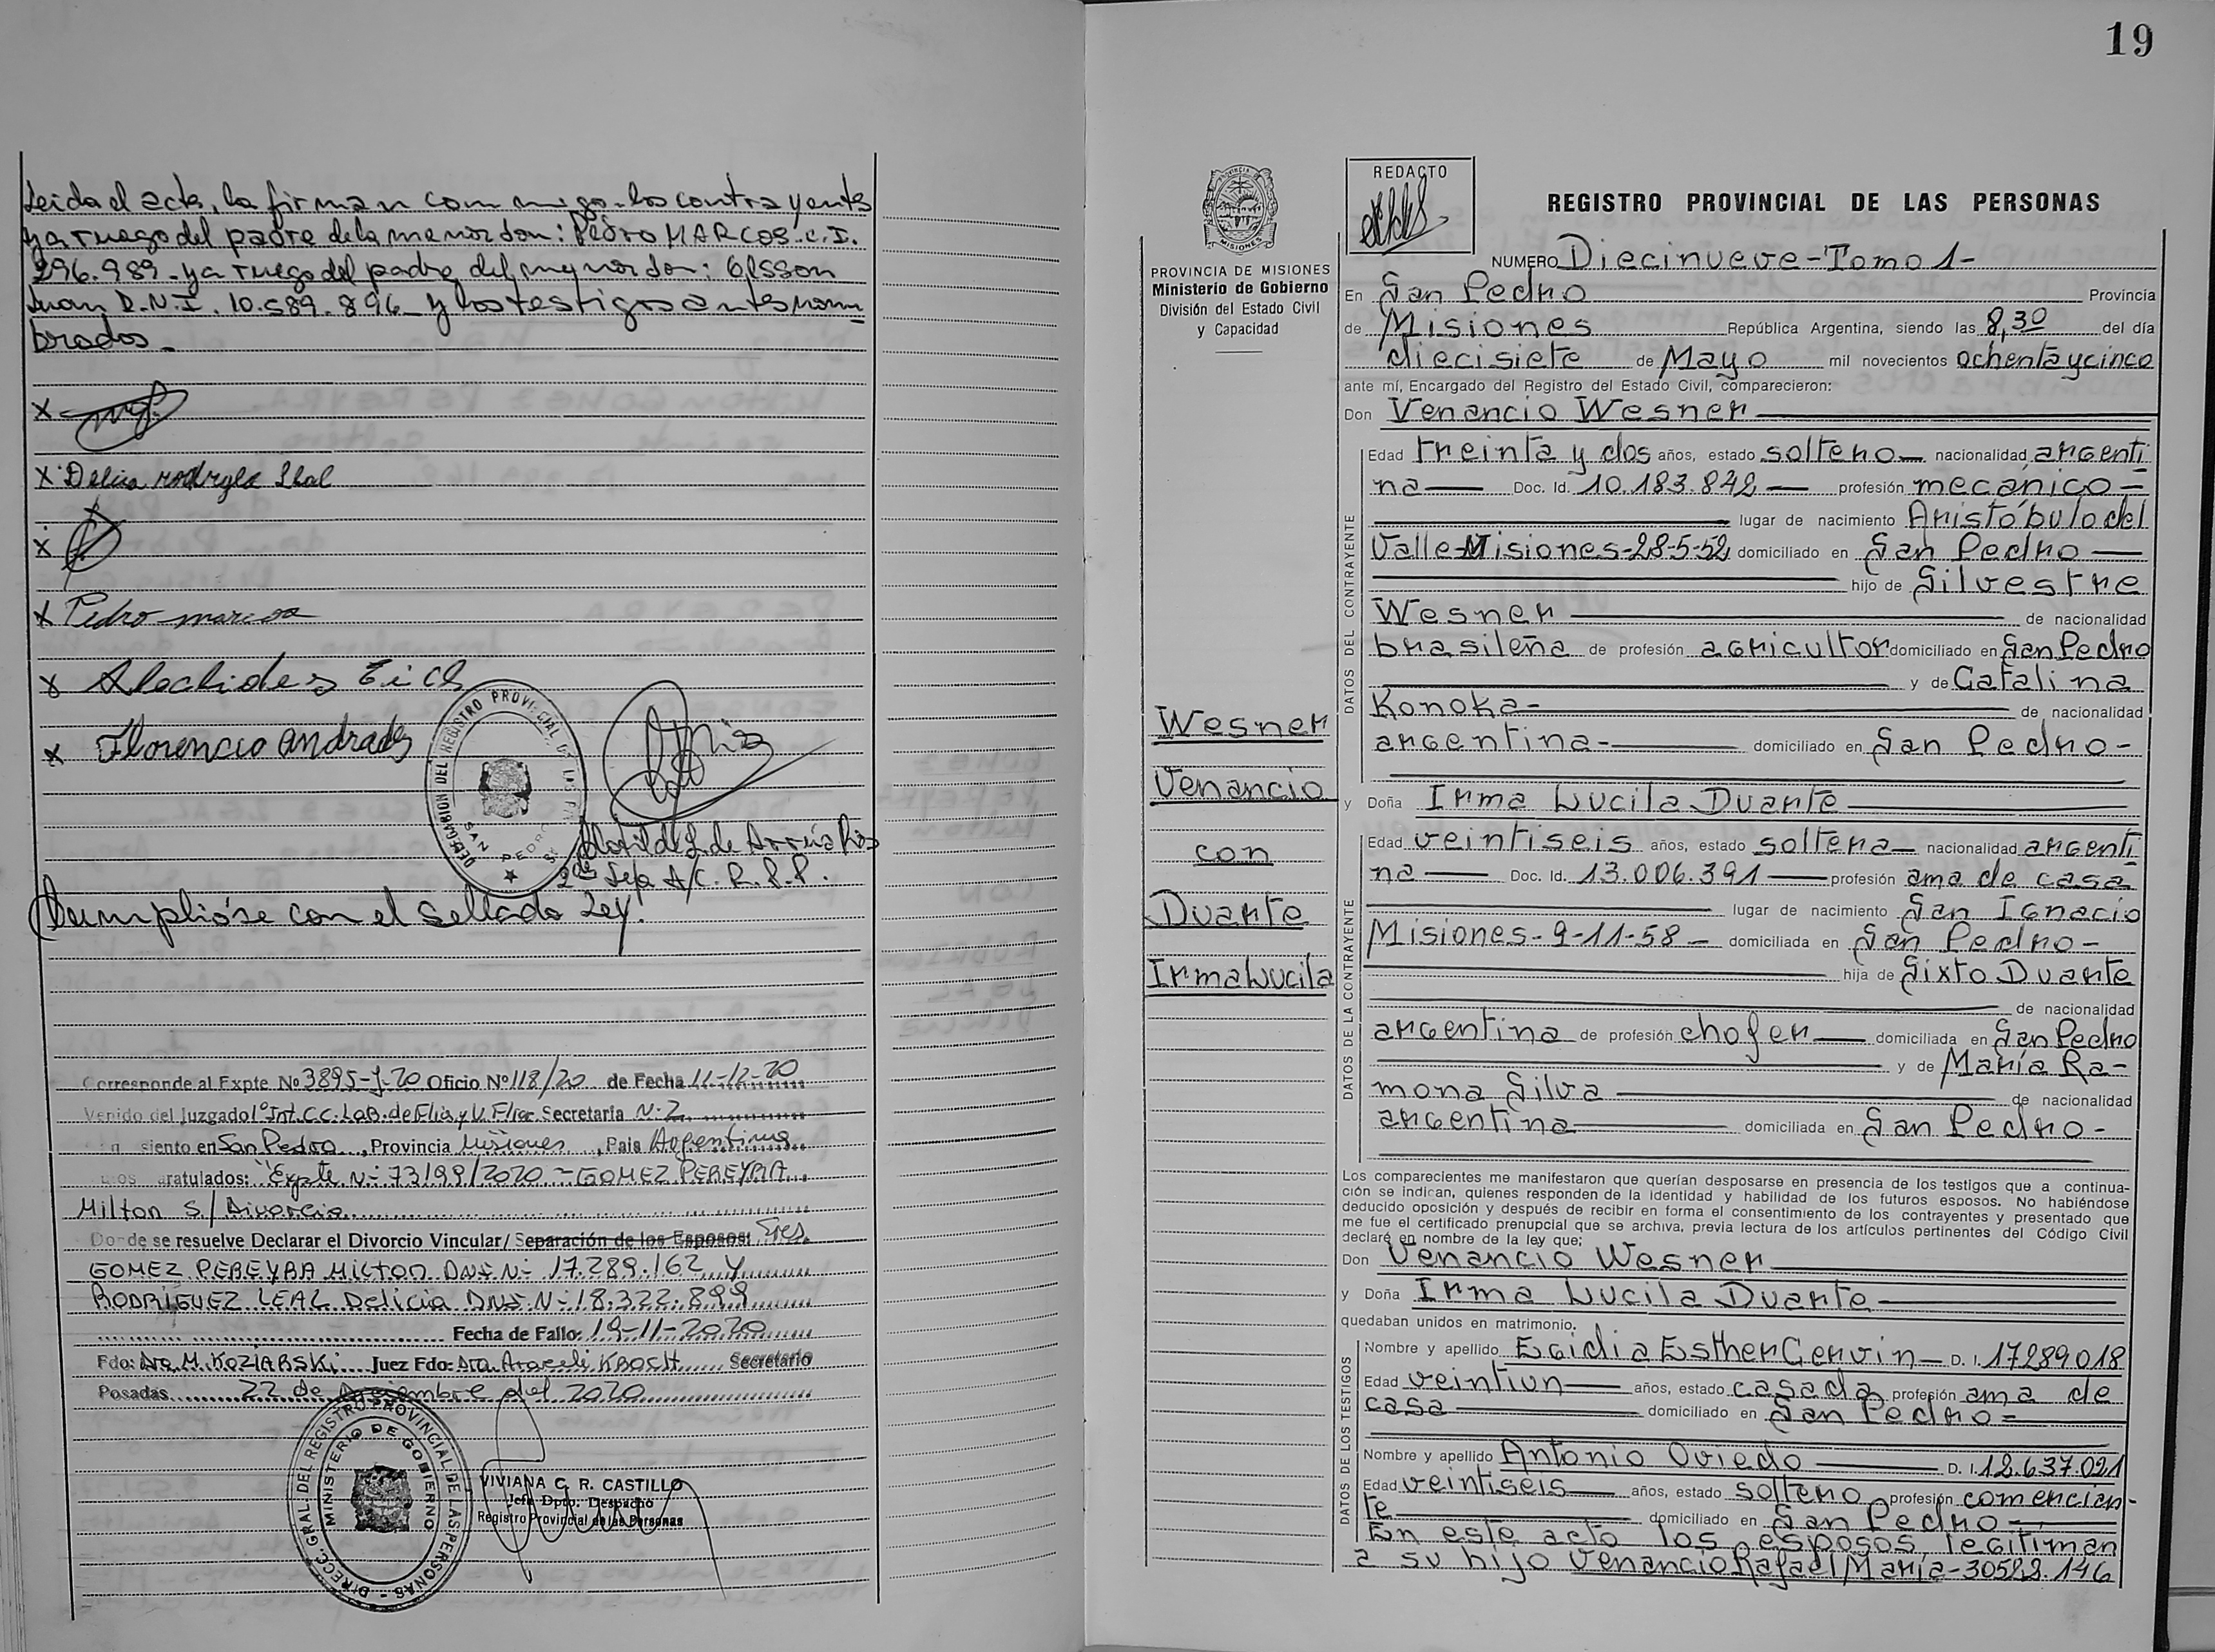 Leida el acta, la firman conmigo los contrayentes
y a ruego del padre de la menor don: Pedro MARCOS. C.I.
296.989 - y a ruego del padre del menor don: Olsson
Juan D.N.I. 10.589.896 y los testigos antes nom
brados.
X
X Delicia rodrygez Lhal
X
X Pedro marcos
X Alechides Eich
X Florencio andrades
DELEGACION DEL REGISTRO PROVINCIAL DE LAS
SAN PEDRO
Clotilde L. de Arrúa
2da A/C. R.P.P.
Cumplióse con el sellado Ley.
Corresponde al Expte Nº 3895-J-20 Oficio Nº 118/20 de Fecha 11-12-20
Venido del Juzgado 1º Int. C.C. Lab. de Flia y V. Fliar Secretaria N-2
siento en San Pedro, Provincia Misiones, Pais Argentina
aratulados: "Expte N- 73199/2020 - GOMEZ PEREYRA
Milton S/ Divorcio
Donde se resuelve Declarar el Divorcio Vincular / Separación de los Esposos: Sres.
GOMEZ PEREYRA Milton DNI N- 17.289.162 y
RODRIGUEZ LEAL Delicia DNI N- 18.322.899
Fecha de Fallo: 19-11-2020
Fdo: Dra M. KOZIARSKI Juez Fdo: Dra Araceli KROSH Secretario
Posadas 22 de Diciembre del 2020
DIRECC. GRAL. DEL REGISTRO PROVINCIAL DE LAS PERSONAS
MINISTERIO DE GOBIERNO
VIVIANA C. R. CASTILLO
Jefe Dpto. Despacho
Registro Provincial de las Personas
19
PROVINCIA DE MISIONES
Ministerio de Gobierno
División del Estado Civil
y Capacidad
Wesner
Venancio
con
Duarte
Irma Lucila
REDACTO
REGISTRO PROVINCIAL DE LAS PERSONAS
NUMERO Diecinueve - Tomo 1 -
En San Pedro Provincia
de Misiones República Argentina, siendo las 8,30 del día
diecisiete de Mayo mil novecientos ochenta y cinco
ante mí, Encargado del Registro del Estado Civil, comparecieron:
Don Venancio Wesner
DATOS DEL CONTRAYENTE
Edad treinta y dos años, estado soltero nacionalidad argenti
na Doc. Id. 10.183.842 profesión mecánico
lugar de nacimiento Aristóbulo del
Valle-Misiones-28-5-52 domiciliado en San Pedro
hijo de Silvestre
Wesner de nacionalidad
brasileña de profesión agricultor domiciliado en San Pedro
y de Catalina
Konoka- de nacionalidad
argentina- domiciliado en San Pedro-
y Doña Irma Lucila Duarte
DATOS DE LA CONTRAYENTE
Edad veintiseis años, estado soltera nacionalidad argenti
na Doc. Id. 13.006.391 profesión ama de casa
lugar de nacimiento San Ignacio
Misiones-9-11-58- domiciliada en San Pedro-
hija de Sixto Duarte
de nacionalidad
argentina de profesión chofer domiciliada en San Pedro
y de María Ra-
mona Silva de nacionalidad
argentina domiciliada en San Pedro-
Los comparecientes me manifestaron que querían desposarse en presencia de los testigos que a continua-
ción se indican, quienes responden de la identidad y habilidad de los futuros esposos. No habiéndose
deducido oposición y después de recibir en forma el consentimiento de los contrayentes y presentado que
me fue el certificado prenupcial que se archiva, previa lectura de los artículos pertinentes del Código Civil
declaré en nombre de la ley que;
Don Venancio Wesner
y Doña Irma Lucila Duarte
quedaban unidos en matrimonio.
DATOS DE LOS TESTIGOS
Nombre y apellido Egidia Esther Gervin D. I. 17289018
Edad veintiun años, estado casada profesión ama de
casa domiciliado en San Pedro
Nombre y apellido Antonio Oviedo D. I. 12.637.021
Edad veintiseis años, estado soltero profesión comercian-
te domiciliado en San Pedro
En este acto los esposos legitiman
a su hijo Venancio Rafael María-30522.146